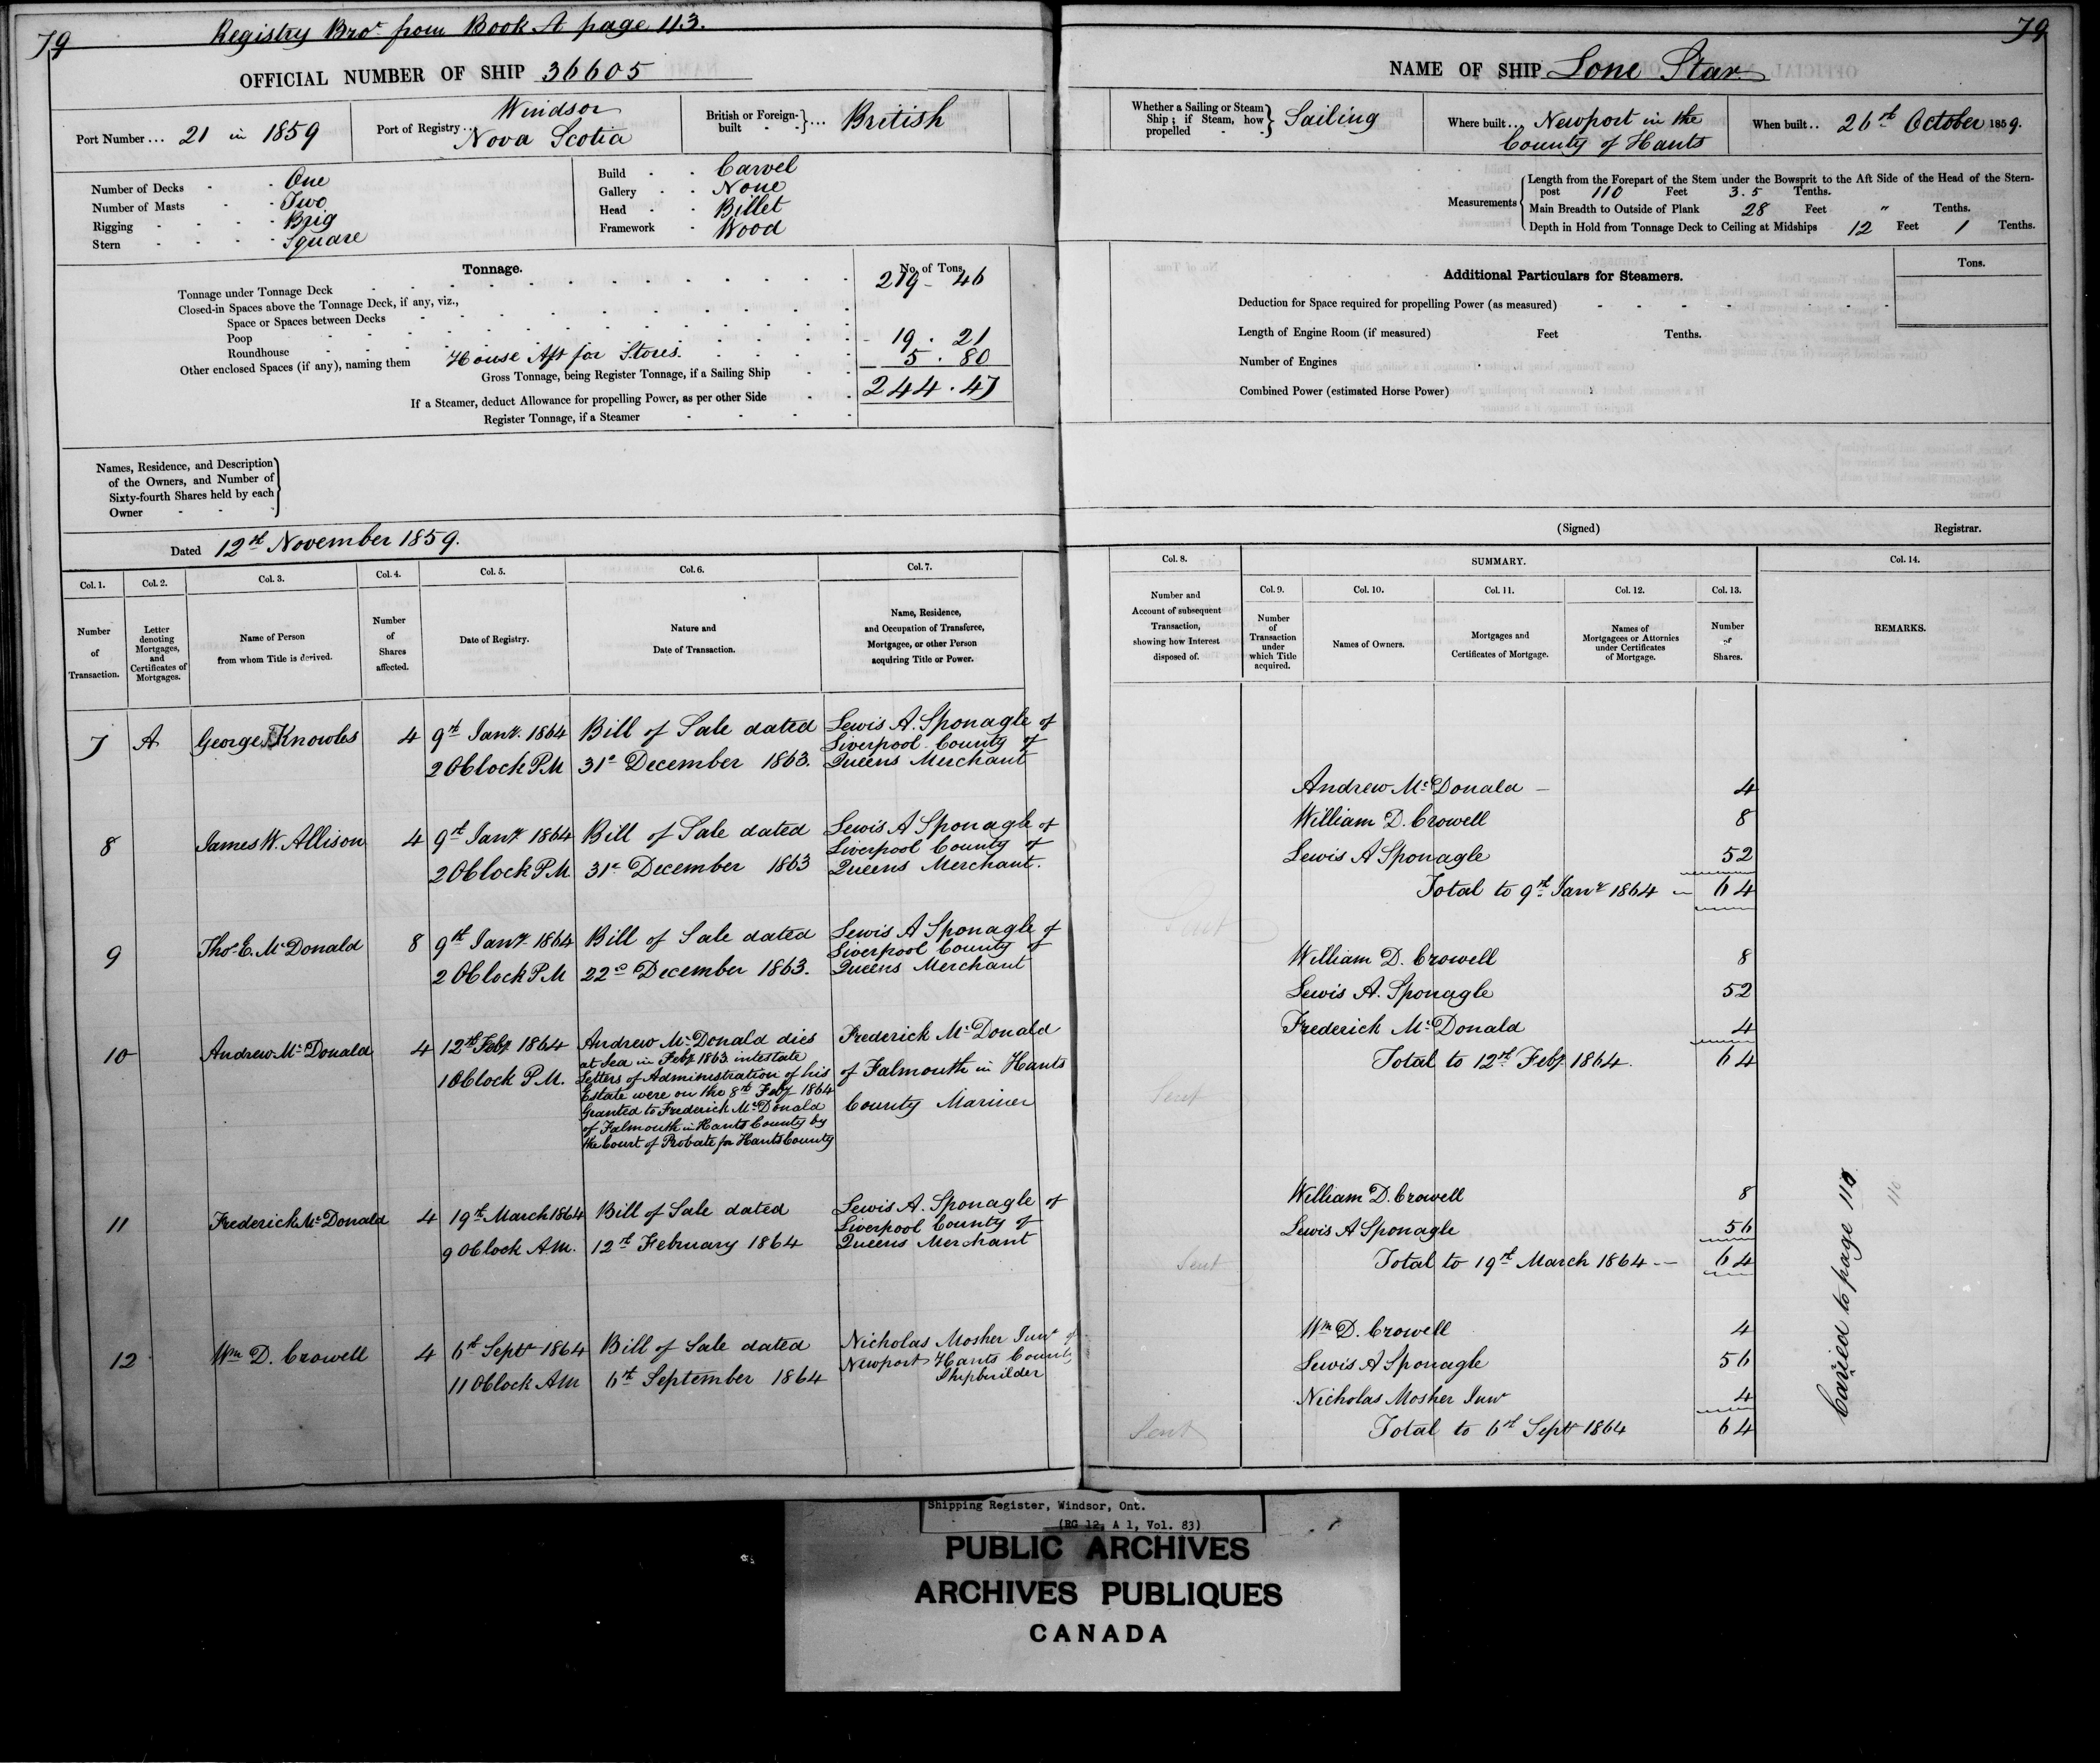 79
Registry Bro.t from Book A page 113.
OFFICIAL NUMBER OF SHIP 36605
Port Number ... 21 in 1859
Port of Registry ... Windsor
Nova Scotia
British or Foreign-built - -} ... British
Number of Decks - - One
Number of Masts - - Two
Rigging - - - - Brig
Stern - - - - Square
Build - - Carvel
Gallery - - None
Head - - Billet
Framework - Wood
Tonnage.
No. of Tons.
Tonnage under Tonnage Deck 219 - 46
Closed-in Spaces above the Tonnage Deck, if any, viz.,
Space or Spaces between Decks
Poop 19 . 21
Roundhouse
Other enclosed Spaces (if any), naming them House Aft for Stores. 5 . 80
Gross Tonnage, being Register Tonnage, if a Sailing Ship 244 . 47
If a Steamer, deduct Allowance for propelling Power, as per other Side
Register Tonnage, if a Steamer
Names, Residence, and Description
of the Owners, and Number of
Sixty-fourth Shares held by each
Owner
Dated 12th November 1859.
Col. 1. Col. 2. Col. 3. Col. 4. Col. 5. Col. 6. Col. 7.
Number of Transaction.
Letter denoting Mortgages, and Certificates of Mortgages.
Name of Person from whom Title is derived.
Number of Shares affected.
Date of Registry.
Nature and Date of Transaction.
Name, Residence, and Occupation of Transferee, Mortgagee, or other Person acquiring Title or Power.
7 A George Knowles 4 9th Jany. 1864 Bill of Sale dated Lewis A. Sponagle of
Liverpool County of
2 OClock PM 31st December 1863. Queens Merchant
8 James W. Allison 4 9th Jany 1864 Bill of Sale dated Lewis A Sponagle of
Liverpool County of
2 OClock P.M. 31st December 1863 Queens Merchant.
9 Thos E. McDonald 8 9th Jany. 1864 Bill of Sale dated Lewis A Sponagle of
Liverpool County of
2 OClock P.M 22nd December 1863. Queens Merchant
10 Andrew McDonald 4 12th Feby 1864 Andrew McDonald dies Frederick McDonald
at Sea in Feby 1863 intestate
1 OClock P.M. Letters of Administration of his of Falmouth in Hants
Estate were on the 8th Feby 1864
Granted to Frederick McDonald County Mariner
of Falmouth in Hants County by
the Court of Probate for Hants County
11 Frederick McDonald 4 19th March 1864 Bill of Sale dated Lewis A. Sponagle of
Liverpool County of
9 OClock A.M. 12th February 1864 Queens Merchant
12 Wm D. Crowell 4 6th Sept 1864 Bill of Sale dated Nicholas Mosher Junr of
Newport Hants County
11 OClock AM 6th September 1864 Shipbuilder
79
NAME OF SHIP Lone Star
Whether a Sailing or Steam Ship; if Steam, how propelled - - -} Sailing
Where built ... Newport in the
County of Hants
When built .. 26th October 1859.
Measurements
Length from the Forepart of the Stem under the Bowsprit to the Aft Side of the Head of the Stern-
post 110 Feet 3.5 Tenths.
Main Breadth to Outside of Plank 28 Feet " Tenths.
Depth in Hold from Tonnage Deck to Ceiling at Midships 12 Feet 1 Tenths.
Additional Particulars for Steamers.
Tons.
Deduction for Space required for propelling Power (as measured)
Length of Engine Room (if measured) Feet Tenths.
Number of Engines
Combined Power (estimated Horse Power)
(Signed) Registrar.
Col. 8. SUMMARY. Col. 14.
Col. 9. Col. 10. Col. 11. Col. 12. Col. 13.
Number and Account of subsequent Transaction, showing how Interest disposed of.
Number of Transaction under which Title acquired.
Names of Owners.
Mortgages and Certificates of Mortgage.
Names of Mortgagees or Attornies under Certificates of Mortgage.
Number of Shares.
REMARKS.
Andrew McDonald - 4
William D. Crowell 8
Lewis A Sponagle 52
Total to 9th Jany 1864 - 64
Sent
William D. Crowell 8
Lewis A. Sponagle 52
Frederick McDonald 4
Total to 12th Feby 1864. 64
Sent
William D. Crowell 8
Lewis A Sponagle 56
Total to 19th March 1864 - 64
Sent
Wm D. Crowell 4
Lewis A Sponagle 56
Nicholas Mosher Junr 4
Total to 6th Sept 1864 64
Sent
Carried to page 110
110
Shipping Register, Windsor, Ont.
(RG 12, A 1, Vol. 83)
PUBLIC ARCHIVES
ARCHIVES PUBLIQUES
CANADA